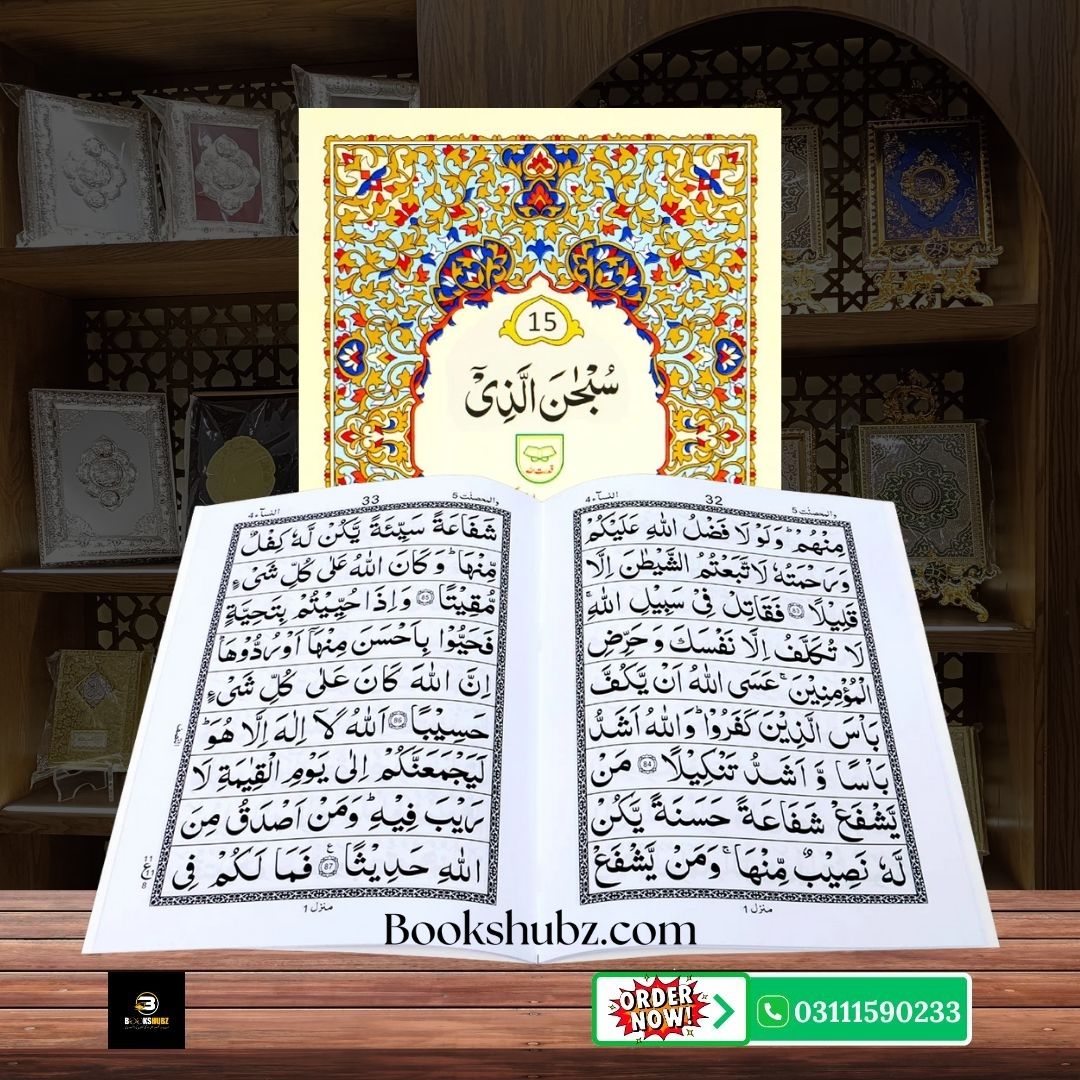 15
سُبْحٰنَ الَّذِیْۤ
قدرت اللہ
والمحصنٰت 5
32
النسآء 4
مِنْهُمْ ؕ وَلَوْ لَا فَضْلُ اللّٰهِ عَلَیْكُمْ
وَرَحْمَتُهٗ لَا تَّبَعْتُمُ الشَّیْطٰنَ اِلَّا
قَلِیْلًا 83 فَقَاتِلْ فِیْ سَبِیْلِ اللّٰهِ ۚ
لَا تُكَلَّفُ اِلَّا نَفْسَكَ وَ حَرِّضِ
الْمُؤْمِنِیْنَ ۚ عَسَی اللّٰهُ اَنْ یَّكُفَّ
بَاْسَ الَّذِیْنَ كَفَرُوْا ؕ وَاللّٰهُ اَشَدُّ
بَاْسًا وَّ اَشَدُّ تَنْكِیْلًا 84 مَنْ
یَّشْفَعْ شَفَاعَةً حَسَنَةً یَّكُنْ
لَّهٗ نَصِیْبٌ مِّنْهَا ۚ وَمَنْ یَّشْفَعْ
منزل 1
والمحصنٰت 5
33
النسآء 4
شَفَاعَةً سَیِّئَةً یَّكُنْ لَّهٗ كِفْلٌ
مِّنْهَا ؕ وَ كَانَ اللّٰهُ عَلٰی كُلِّ شَیْءٍ
مُّقِیْتًا 85 وَ اِذَا حُیِّیْتُمْ بِتَحِیَّةٍ
فَحَیُّوْا بِاَحْسَنَ مِنْهَاۤ اَوْ رُدُّوْهَا ؕ
اِنَّ اللّٰهَ كَانَ عَلٰی كُلِّ شَیْءٍ
حَسِیْبًا 86 اَللّٰهُ لَاۤ اِلٰهَ اِلَّا هُوَ ؕ
لَیَجْمَعَنَّكُمْ اِلٰی یَوْمِ الْقِیٰمَةِ لَا
رَیْبَ فِیْهِ ؕ وَمَنْ اَصْدَقُ مِنَ
اللّٰهِ حَدِیْثًا 87 ع فَمَا لَكُمْ فِی
11
ع
8
منزل 1
Bookshubz.com
BOOKSHUBZ
ORDER NOW!
03111590233